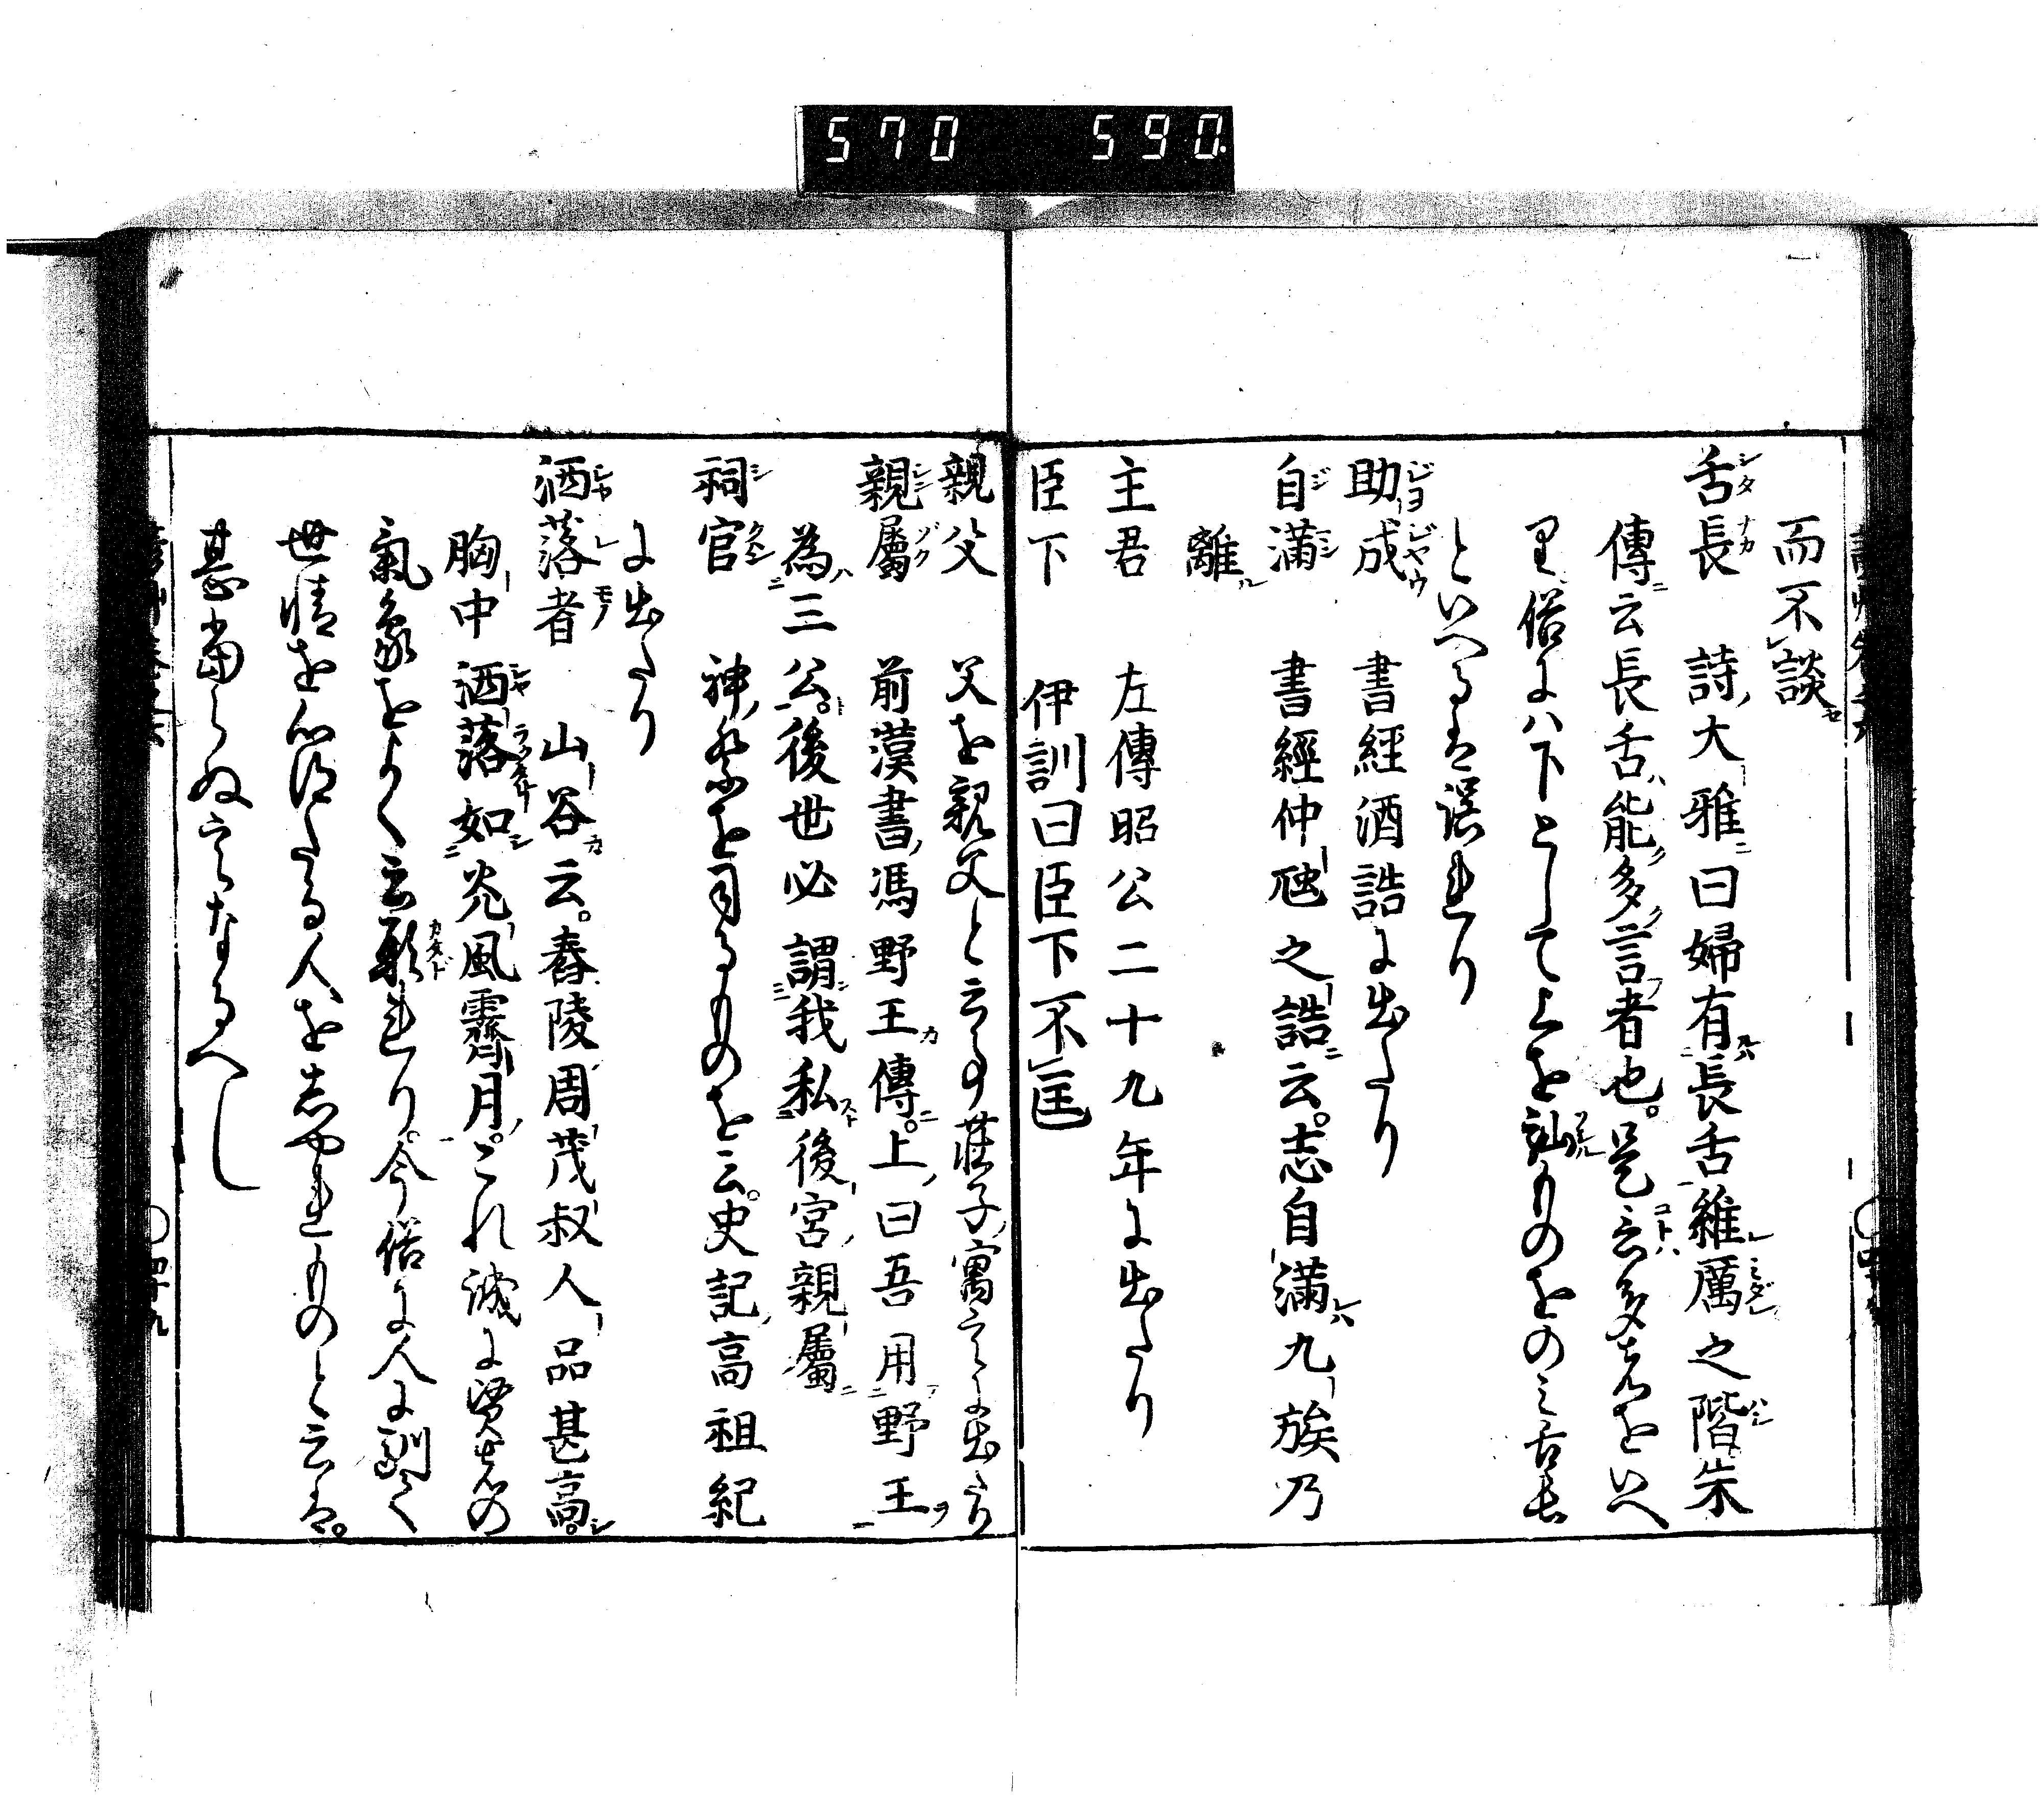 570 590
而不談
舌長 詩大雅曰婦有長舌維厲之階朱
傳云長舌能多言者也。是言多きをいへ
り俗には下として上を訕ものをのみ舌長
といへるは誤れり
助成 書經酒誥に出たり
自満 書經仲虺之誥云。志自満九族乃
離
主君 左傳昭公二十九年に出たり
臣下 伊訓曰臣下不匡
親父 父を親父と云事荘子寓言に出たり
親屬 前漢書馮野王傳。上曰吾用野王
為三公。後世必謂我私後宮親屬
祠官 神祭を司るものを云。史記高祖紀
に出たり
洒落者 山谷云。舂陵周茂叔人品甚高。
胸中洒落如光風霽月。これ誠に賢者の
氣象をよく云形れり。今俗に人に馴て
世情を心得たる人をしやれものと云は。
甚當らぬ言なるへし
四十九